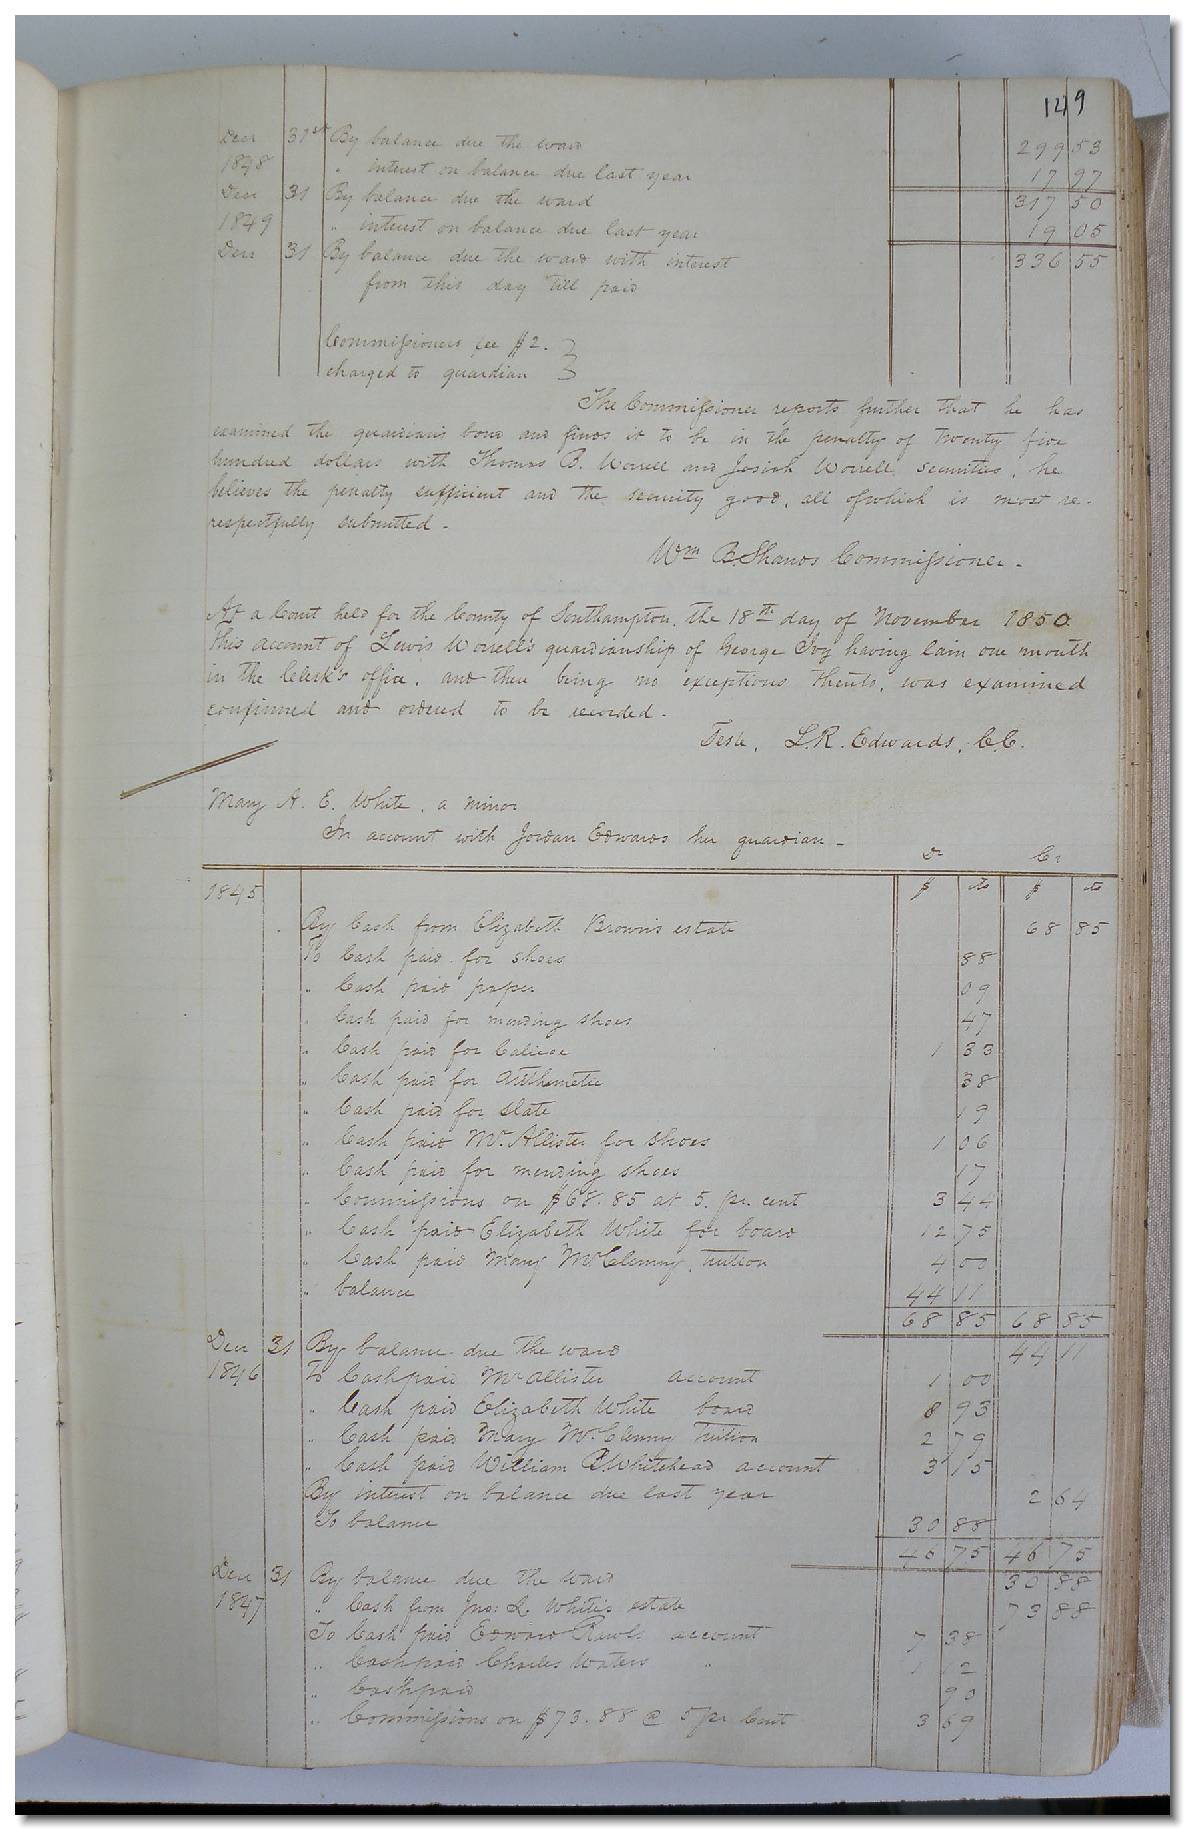 149
Decr 31st By balance due the ward 299 53
1848 " interest on balance due last year 17 97
Decr 31 By balance due the ward 317 50
1849 " interest on balance due last year 19 05
Decr 31 By balance due the ward with interest 336 55
from this day till paid
Commissioners fee $2. }
charged to guardian }
The Commissioner reports further that he has
examined the guardians bond and finds it to be in the penalty of twenty five
hundred dollars with Thomas B. Worrell and Josiah Worrell securities, he
believes the penalty sufficient and the security good, all of which is most re-
respectfully submitted -
Wm B. Shands Commissioner -
At a Court held for the County of Southampton, the 18th day of November 1850.
This account of Lewis Worrell's guardianship of George Ivy having lain one month
in the Clerk's office, and there being no exceptions thereto, was examined
confirmed and ordered to be recorded.
Teste, L.R. Edwards, C.C.
Mary A. E. White, a minor
In account with Jordan Edwards her guardian -
Dr Cr
1845 $ cts $ cts
By Cash from Elizabeth Brown's estate 68 85
To Cash paid for shoes 88
" Cash paid paper 09
" Cash paid for mending shoes 47
" Cash paid for Calicoe 1 33
" Cash paid for Arithmetic 38
" Cash paid for slate 19
" Cash paid McAllister for shoes 1 06
" Cash paid for mending shoes 17
" Commissions on $68.85 at 5. pr. cent 3 44
" Cash paid Elizabeth White for board 12 75
" Cash paid Mary McClenny, tuition 4 00
" balance 44 11
68 85 68 85
Decr 31 By balance due the ward 44 11
1846 To Cash paid McAllister account 1 00
" Cash paid Elizabeth White board 8 93
" Cash paid Mary McClenny tuition 2 79
" Cash paid William B Whitehead account 3 15
By interest on balance due last year 2 64
To balance 30 88
46 75 46 75
Decr 31 By balance due the ward 30 88
1847 " Cash from Jno: L. White's estate 73 88
To Cash paid Edward Rawls account 7 38
" Cash paid Charles Waters " 1 12
" Cash paid 90
" Commissions on $73.88 @ 5 pr Cent 3 69